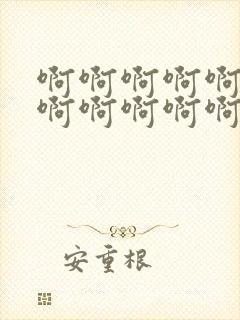 啊啊啊啊啊
啊啊啊啊啊
安重根